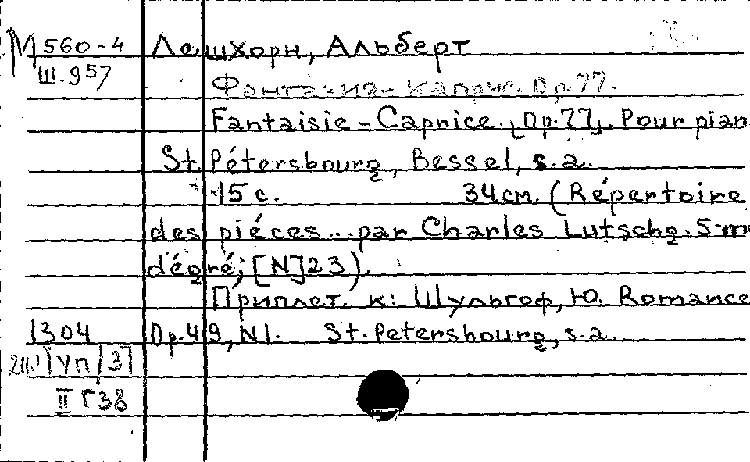 М 560-4 Лешхорн, Альберт
Ш.957
Фантазия-каприс. Ор.77.
Fantaisie-Caprice. [Op.77]. Pour pian
St. Pétersbourg, Bessel, s.a.
15 с. 34см. (Répertoire
des piéces... par Charles Lutschg. 5-m
d'égré; [N]23).
Приплет. к: Шульгоф, Ю. Romance
1304 Op.49, N1. St. Petersbourg, s.a.
УП/3
II Г38